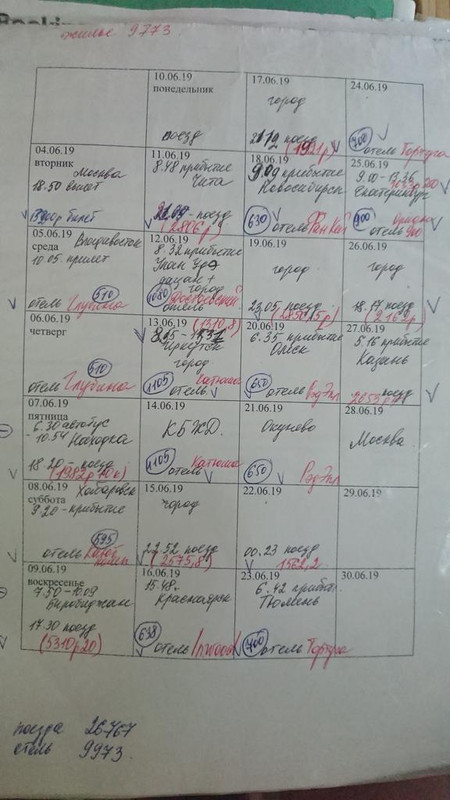 отелье 9773
10.06.19
понедельник
поезд
17.06.19
город
поезд
24.06.19
700
отель Тортуга
04.06.19
вторник
Москва
18.50 вылет
билет
11.06.19
8.48 прибытие
Чита
поезд
(2806 р)
18.06.19
9.09 прибытие
Новосибирск
630 отель
25.06.19
Екатеринбург
900 отель
05.06.19
среда
Владивосток
10.05 прилет
510
отель Глубина
12.06.19
8.32 прибытие
Улан Удэ
дацан +
город
отель
19.06.19
город
23.05 поезд
26.06.19
город
18.17 поезд
06.06.19
четверг
510
отель Глубина
13.06.19
Иркутск
город
1105 отель Катюша
20.06.19
6.35 прибытие
Омск
650 отель
27.06.19
5.16 прибытие
Казань
поезд
07.06.19
пятница
6.30 автобус
- 10.54 Находка
18.20 - поезд
14.06.19
КБЖД.
1105 отель Катюша
21.06.19
Окунево
650
28.06.19
Москва
08.06.19
суббота
Хабаровск
9.20 - прибытие
595
отель
15.06.19
город
22.52 поезд
(2575,8)
22.06.19
00.23 поезд
1562,2
29.06.19
09.06.19
воскресенье
7.50 - 10.09
Биробиджан
17.30 поезд
(5310р20)
16.06.19
15.48
Красноярск
638 отель
23.06.19
6.42 прибыт.
Тюмень
700 отель Тортуга
30.06.19
поезда 26767
отель 9973.